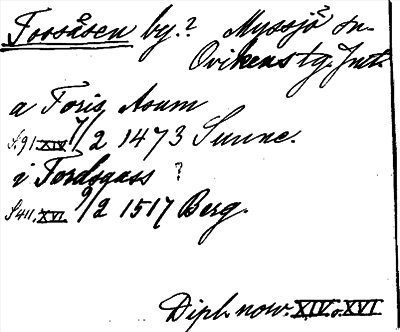 Forsåsen by.? Myssjö sn.
Ovikens tg. Jmtl.
a Foris Asum
S.91 XIV 7/2 1473 Sunne.
i Fordsgass ?
S411. XVI 9/2 1517 Berg.
Dipl. norv. XIV o. XVI